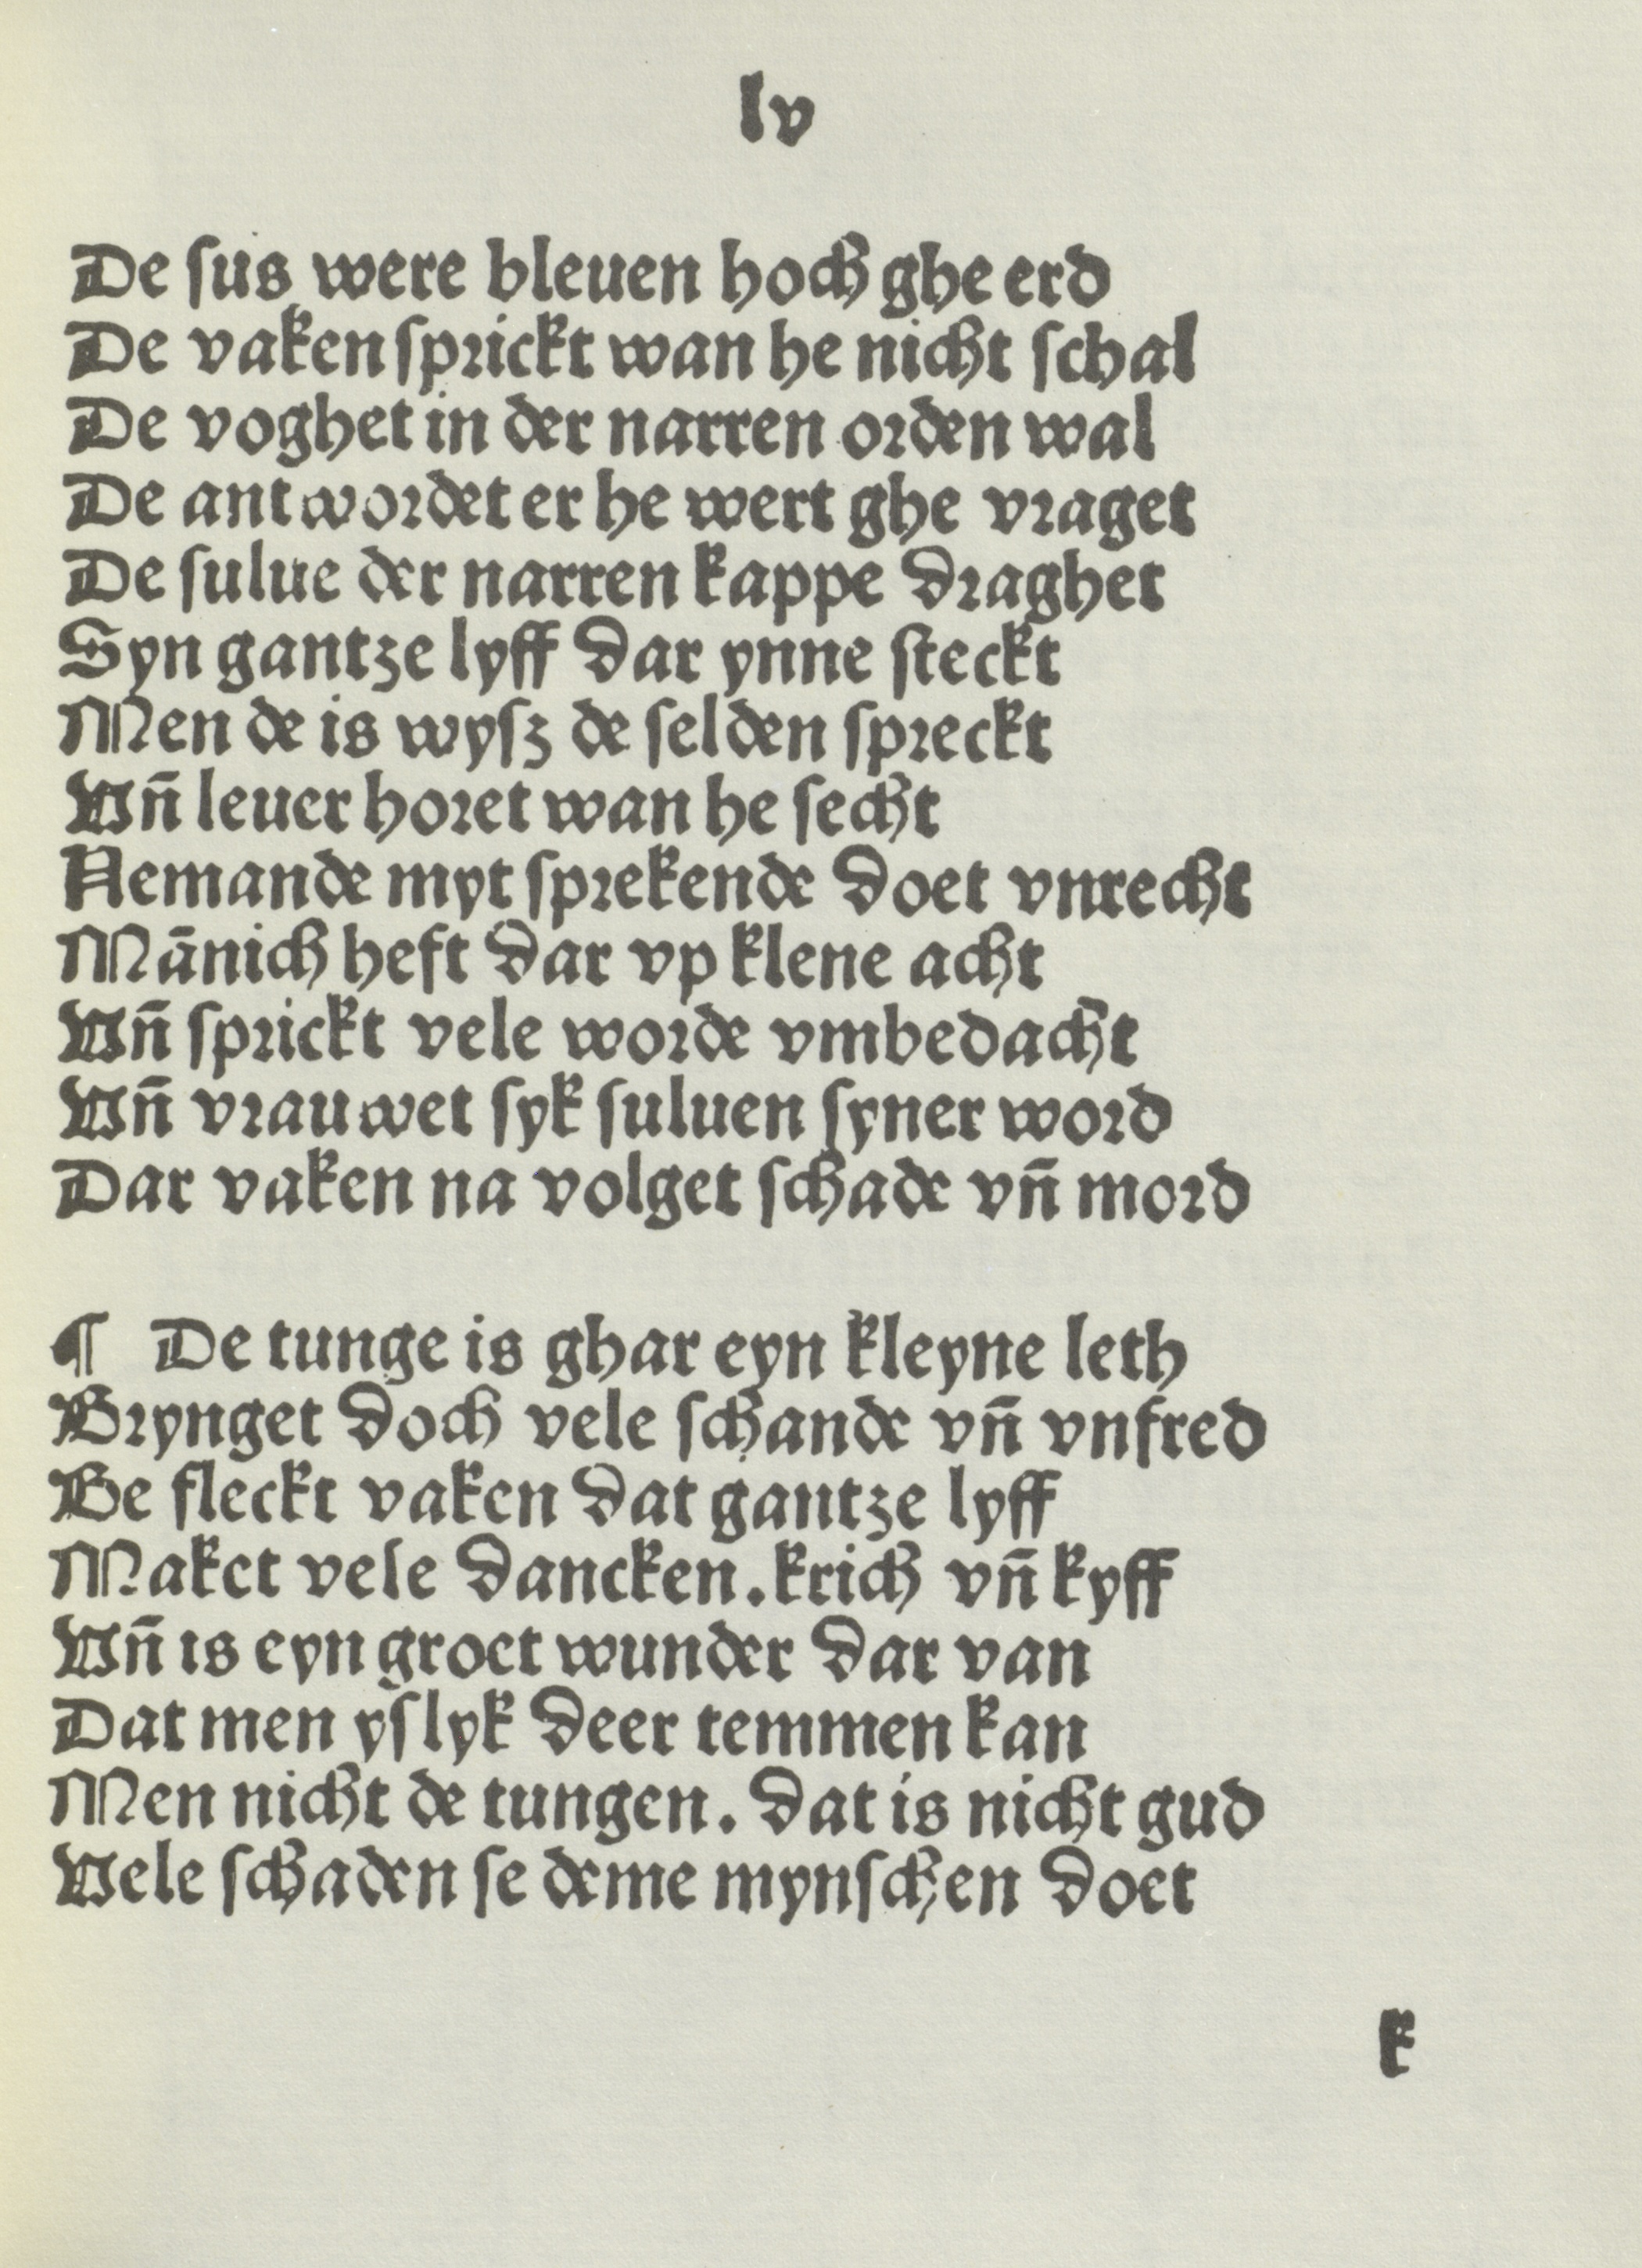 lv
De sus were bleuen hoch ghe erd
De vaken sprickt wan he nicht schal
De voghet in der narren orden wal
De antwordet er he wert ghe vraget
De sulue der narren kappe draghet
Syn gantze lyff dar ynne steckt
Men de is wysz de selden spreckt
Vn̄ leuer horet wan he secht
Nemande myt sprekende doet vnrecht
Mānich heft dar vp klene acht
Vn̄ sprickt vele worde vmbedacht
Vn̄ vrauwet syk suluen syner word
Dar vaken na volget schade vn̄ mord
¶ De tunge is ghar eyn kleyne leth
Brynget doch vele schande vn̄ vnfred
Be fleckt vaken dat gantze lyff
Maket vele dancken. krich vn̄ kyff
Vn̄ is eyn groet wunder dar van
Dat men yslyk deer temmen kan
Men nicht de tungen. dat is nicht gud
Vele schaden se deme mynschen doet
k